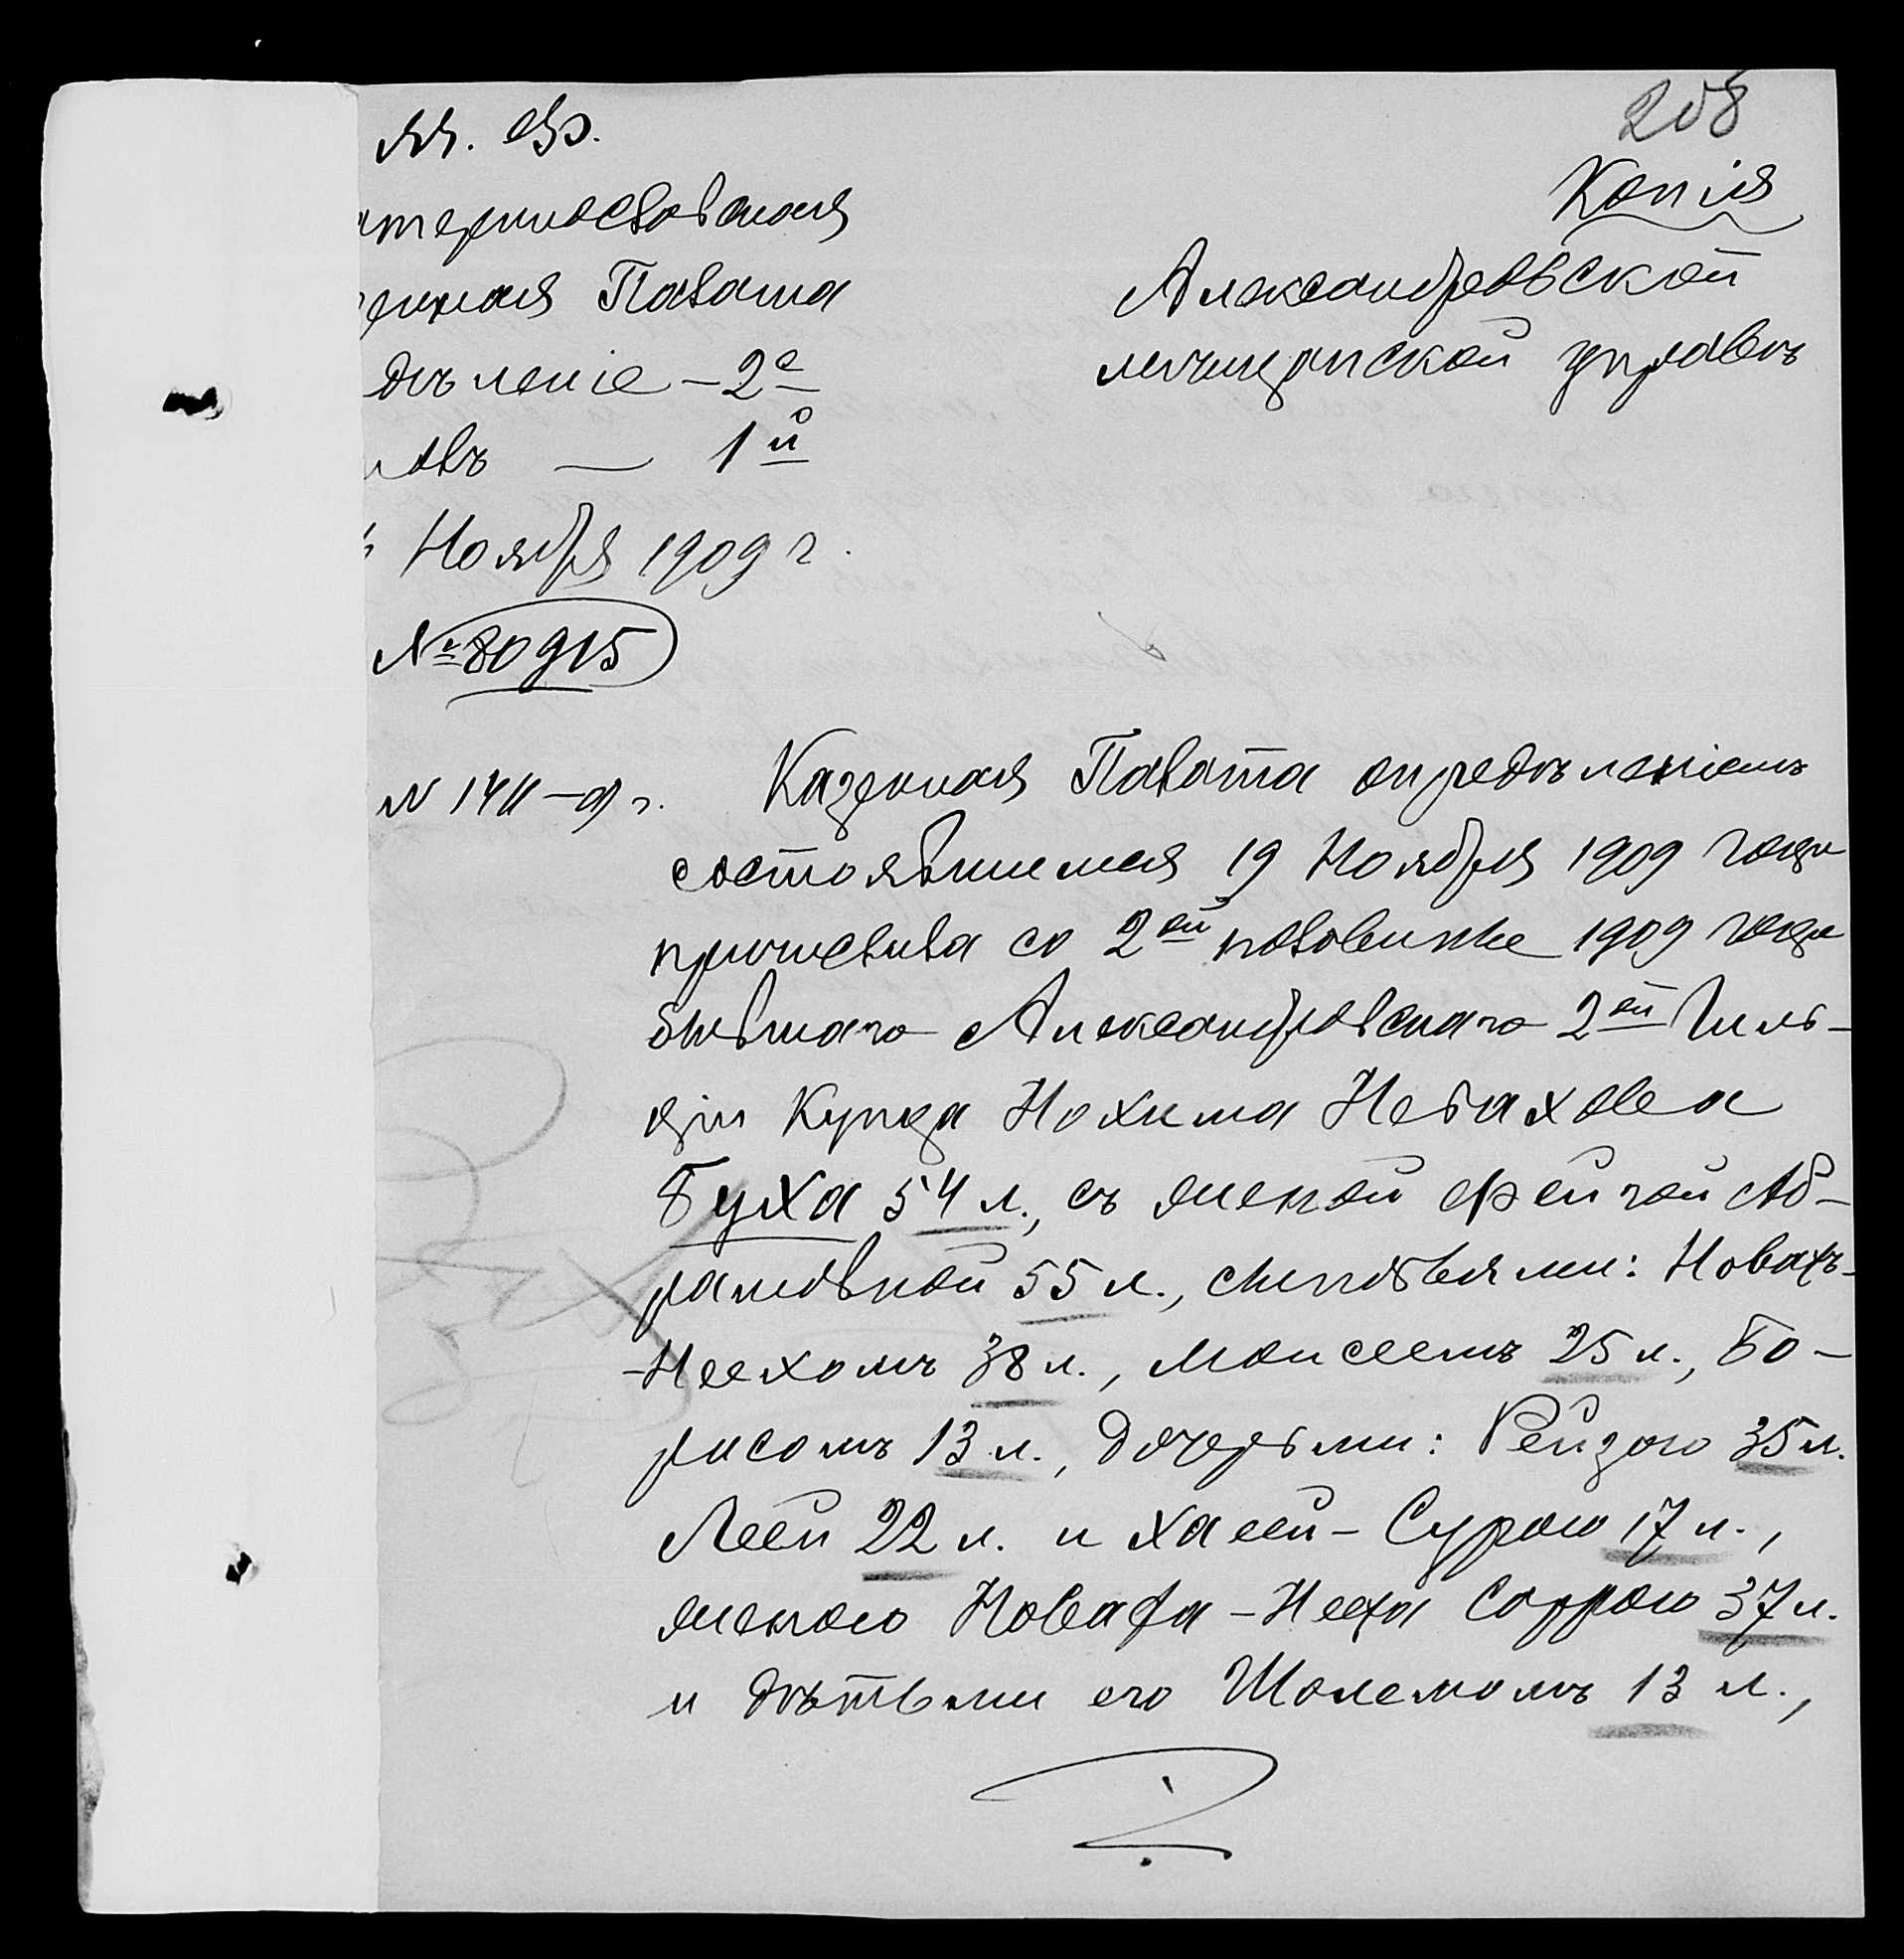 208
М. Ф.
Копія
атеринославская
енная Палата
дѣленіе – 2е
олъ — 1й
Ноября 1909 г.
№ 80915
Александровской
мѣщанской управѣ
N 1411–9 г.
Казенная Палата опредѣленіемъ
состоявшимся 19 Ноября 1909 года
причислила со 2ой половины 1909 года
бывшаго Александровскаго 2ой Гиль-
діи Купца Нохима Невахова
Буха 54 л., съ женой Фейгой Аб-
рамовной 55 л., сыновьями: Новахъ-
-Неехомъ 38 л., Моисеемъ 25 л., Бо-
рисомъ 13 л., дочерьми: Рейзою 35 л.
Леей 22 л. и Хаей-Сурою 17 л.,
женою Новаха-Нееха Саррою 37 л.
и дѣтьми его Шолемомъ 13 л.,